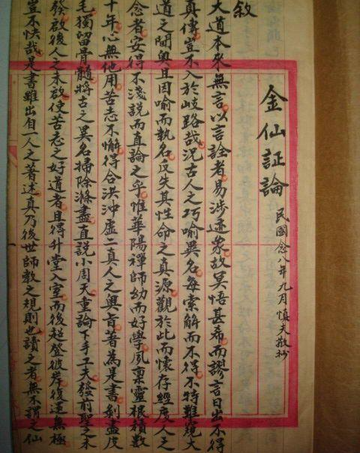 金仙証論
民國念八年九月慎夫敬抄
敘
大道本來無言以言詮者易涉迹象故冥悟甚希而謬言日出不得
真傳豈不入於岐路哉況古人之巧喻異名每索解而不得不特難窺大
道之閫奧且因喻而執名反失其性命之真源觀於此而懷存經度人之
念者安得不淺說而直論之乎惟華陽禪師幼而好學夙稟靈根積數
十年心無他用苦志不懈得合洪沖虛二真人之奧旨者為是書剝盡皮
毛獨留骨髓將古之異名掃除滌盡直說小周天重論下手工夫發前聖之未
發啟後人之未放使苦志之好道者且得升堂入室而後超登彼岸復還無極
豈不快哉是書雖出自一人之著述真乃後世師教之規則也讀之者無不謂之仙